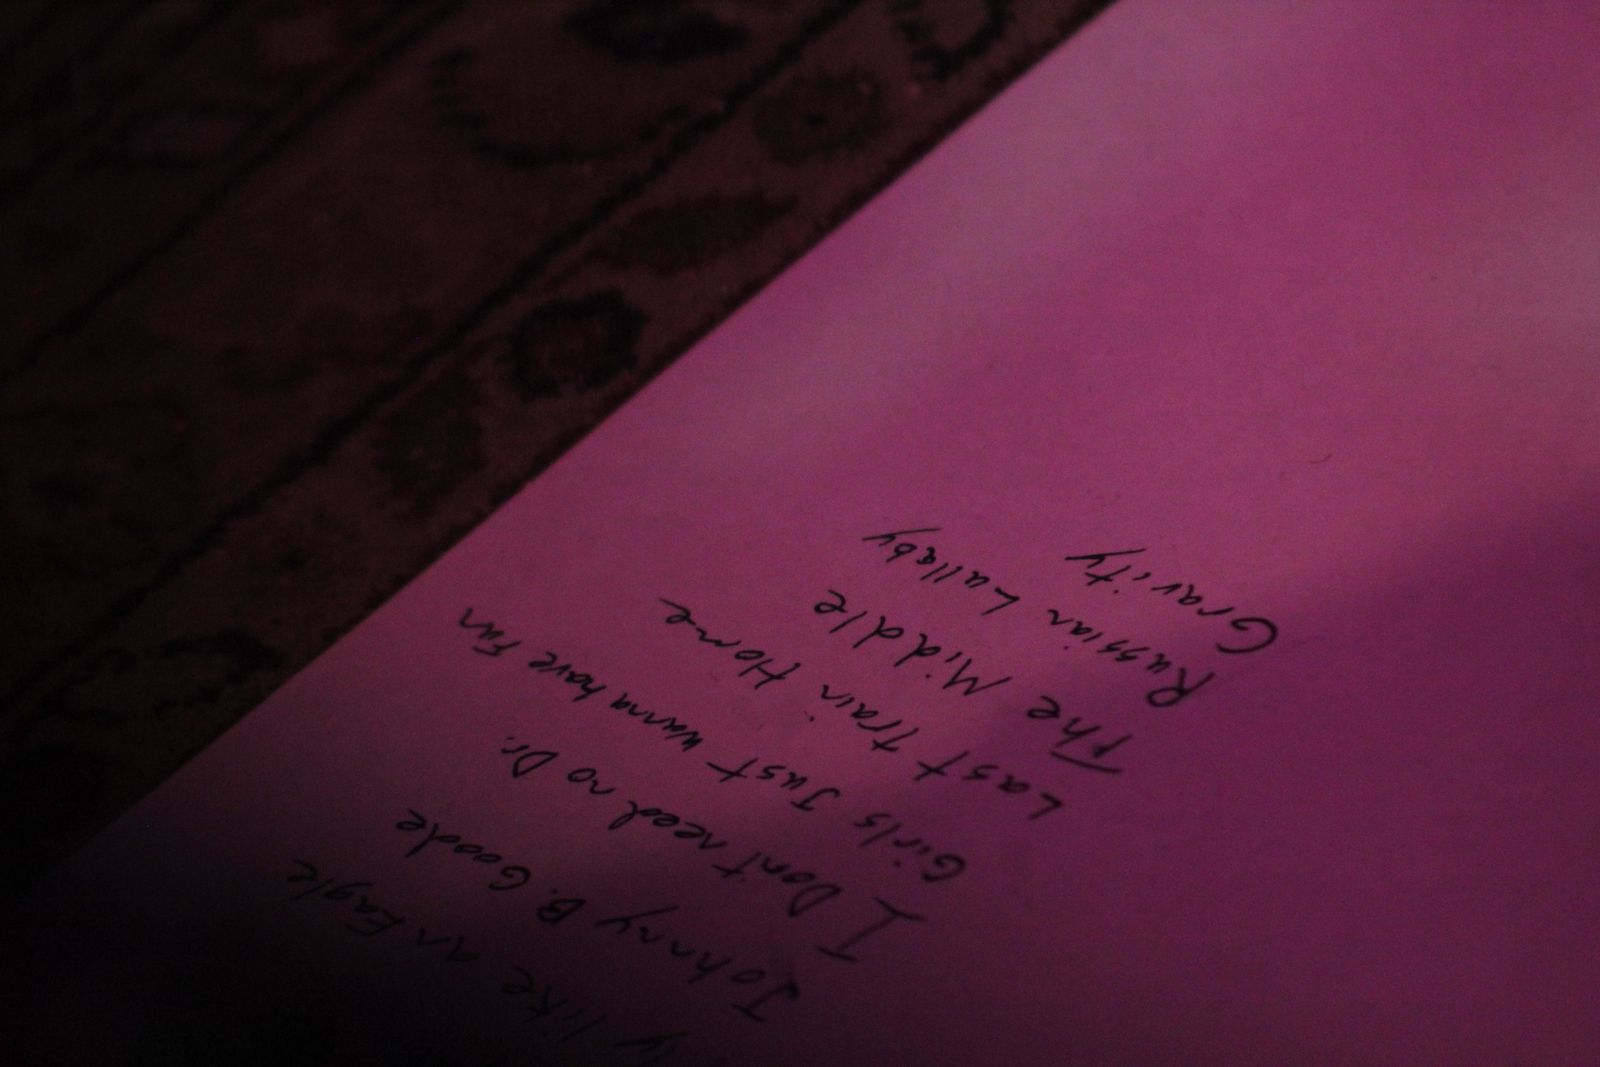 y like an Eagle
Johnny B. Goode
I Don't need no Dr.
Girls Just wanna have Fun
Last train Home
The Middle
Russian Lullaby
Gravity